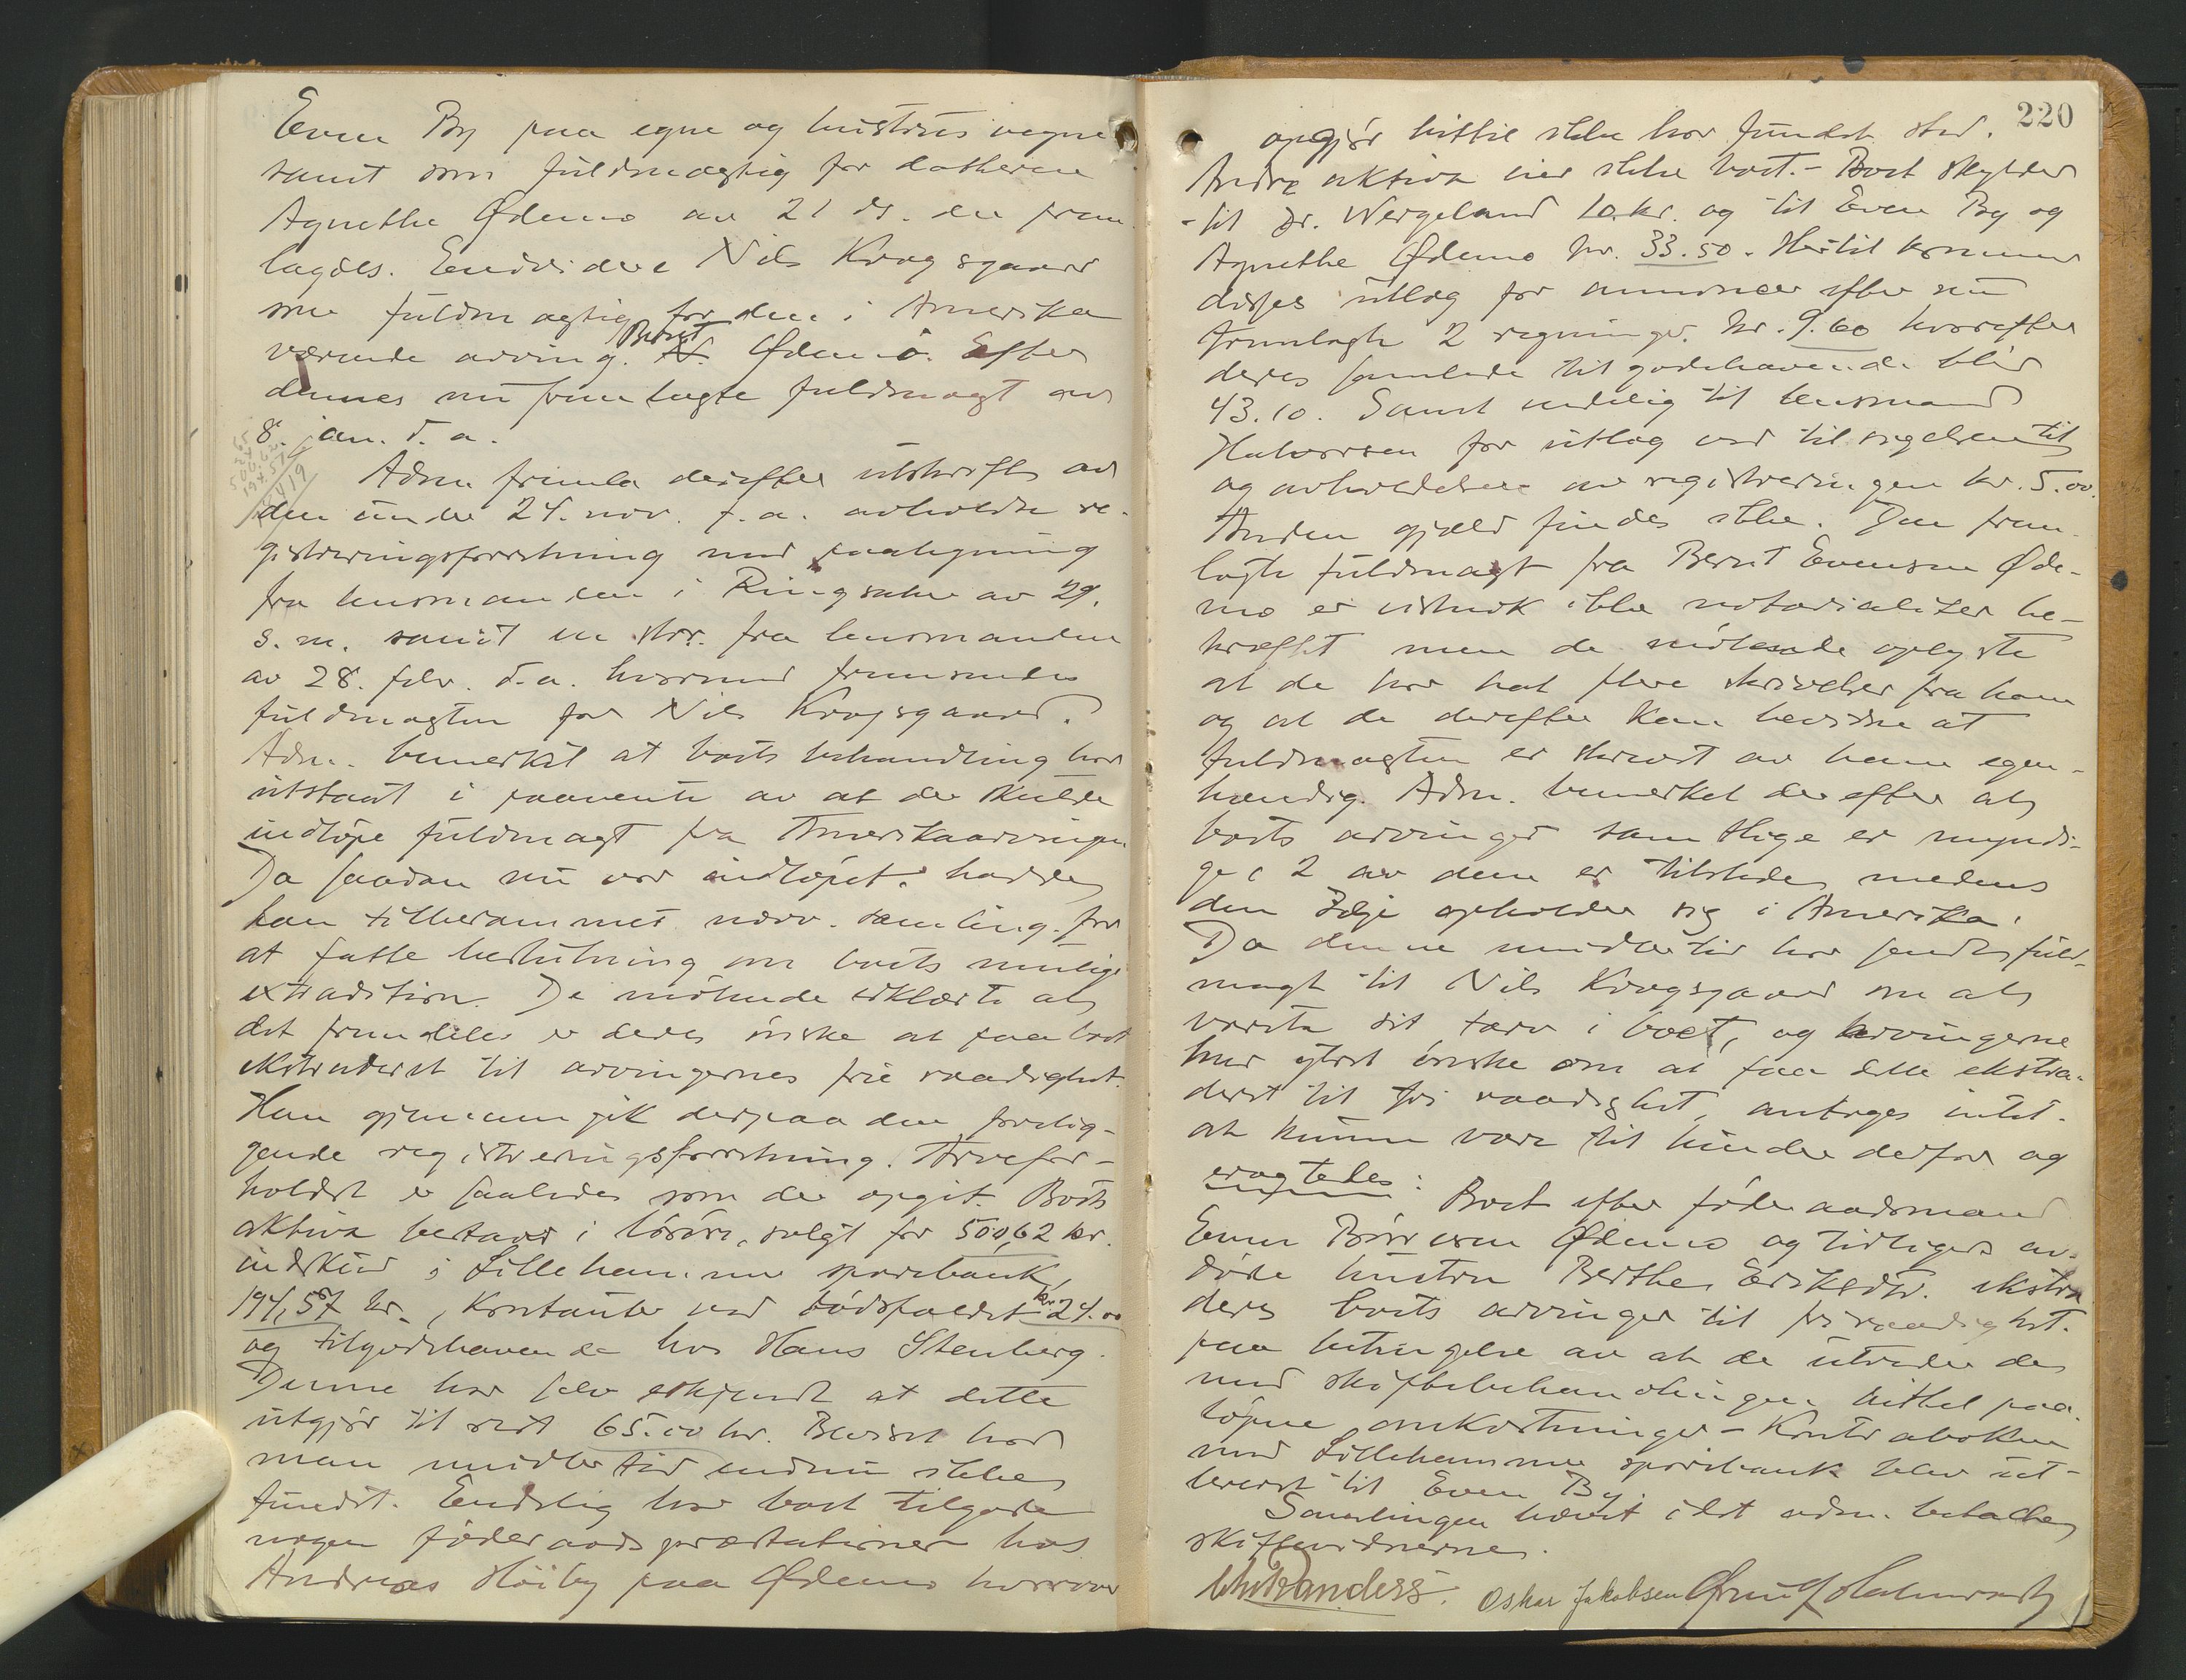 Even By paa egne og hustrus vegne
samt som fuldmægtig for datteren
Agnethe Ødemo av 21 ds. der frem-
lagdes. Endvidere Nils Krogsgaard
som fuldmægtig for den i Amerika
værende arving Bernt Ødemo. Efter
dennes nu fremlagte fuldmagt av
8. jan. d. a.
Adm. fremla derefter utskrift av
den under 24. nov. f. a. avholdte re-
gistreringsforretning med paategning
fra lensmanden i Ringsaker av 29.
s. m. samt en skr. fra lensmanden
av 28. febr. d. a. hvormed fremsendes
fuldmagten for Nils Krogsgaard.
Adm. bemerket at boets behandling har
utstaat i paavente av at der skulde
indløpe fuldmagt fra Amerikaarvingen.
Da saadan nu var indløpet, hadde
han tilberammet nærv. samling for
at fatte beslutning om boets mulige
extradition. De møtende erklærte at
det fremdeles er deres ønske at faa boet
ekstraderet til arvingernes frie raadighet.
Han gjennemgik derpaa den forelig-
gende registreringsforretning. Arvefor-
holdet er saaledes som der opgit. Boets
aktiva bestaar i løsøre, solgt for 500,62 kr.
indskud i Lillehammer sparebank,
194,57 kr., kontanter ved dødsfaldet kr 24.00
og tilgodehavende hos Hans Stenberg.
Denne har selv erkjendt at dette
utgjør til rest 65.00 kr. Beviset har
man imidlertid endnu ikke
fundet. Endelig har boet tilgode
nogen føderaadspræstationer hos
Andreas Høiby paa Ødemo hvorover
220
opgjør hittil ikke har fundet sted.
Andre aktiva eier ikke boet. - Boet skylder
til Dr. Wergeland 10 kr. og til Even By og
Agnethe Ødemo kr. 33.50. Hertil kommer
disses utlæg for annoncer efter nu
fremlagte 2 regninger kr. 9.60 hvorefter
deres samlede tilgodehavende blir
43.10. Samt endelig til lensmand
Halvorsen for utlæg ved tilsigelsen til
og avholdelsen av registreringen kr. 5.00.
Anden gjæld findes ikke. Den frem-
lagte fuldmagt fra Bernt Evensen Øde-
mo er vistnok ikke notarialiter be-
kræftet men de møtende oplyste
at de har hat flere skrivelser fra ham
og at de derefter kan bevidne at
fuldmagten er skrevet av ham egen-
hændig. Adm. bemerket derefter at
boets arvinger samtlige er myndi-
ge, 2 av dem er tilstede, medens
den 3dje opholder sig i Amerika.
Da denne imidlertid har sendt fuld-
magt til Nils Krogsgaard om at
vareta sit tarv i boet, og arvingerne
har ytret ønske om at faa dette ekstra-
deret til fri raadighet, antages intet
at kunne være til hinder derfor og
eragtedes: Boet efter føderaadsmand
Even Børresen Ødemo og tidligere av-
døde hustru Berthe Eriksdtr. ekstra
deres boets arvinger til fri raadighet.
paa betingelse av at de utreder de
med skiftebehandlingen hittil paa-
løpne omkostninger - Kontraboken
med Lillehammer sparebank blev ut-
leveret til Even By.
Samlingen hævet idet adm. betalte
skiftevidnerne.
Oskar Jakobsen